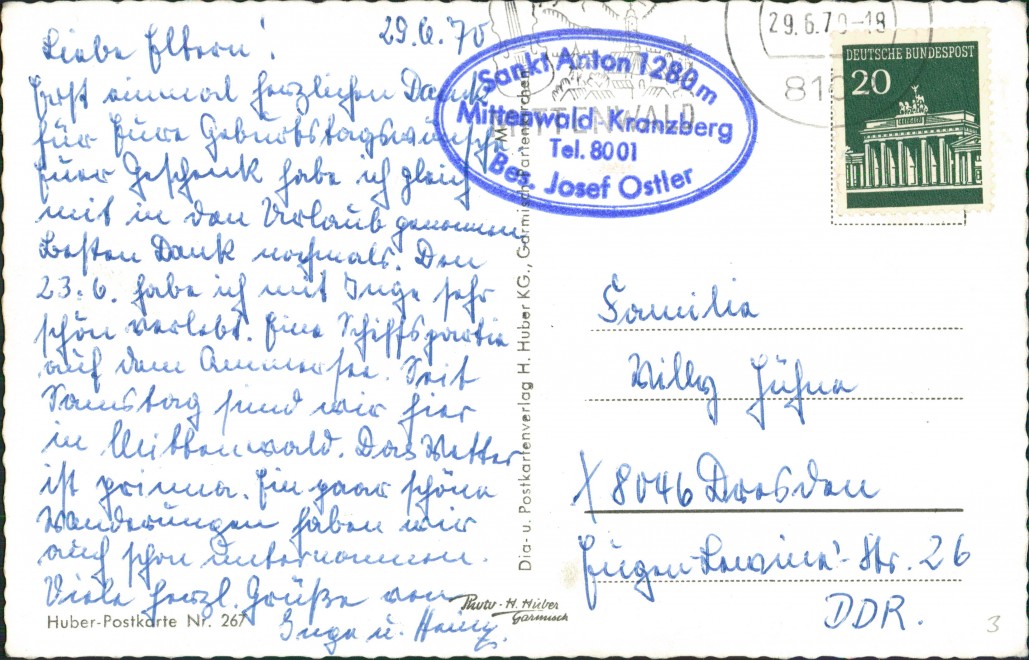 29.6.70
Liebe Eltern!
Erst einmal herzlichen Dank
für Eure Geburtstagswünsche
Euer Geschenk habe ich gleich
mit in den Urlaub genommen
Besten Dank nochmals. Den
23.6. habe ich mit Inge sehr
schön verlebt. Eine Schiffspartie
auf dem Ammersee. Seit
Samstag sind wir hier
in Mittenwald. Das Wetter
ist prima. Ein paar schöne
Wanderungen haben wir
auch schon unternommen.
Viele herzl. Grüße von
Inge u. Heinz.
Huber-Postkarte Nr. 267
Photo-H. Huber
Garmisch
Dia- u. Postkartenverlag H. Huber KG., Garmisch-Partenkirchen
Sankt Anton 1280m
Mittenwald, Kranzberg
Tel. 8001
Bes. Josef Ostler
MITTENWALD
29.6.70-18
810
DEUTSCHE BUNDESPOST
20
Familie
Willy Hühne
X 8046 Dresden
Eugen-Levine-Str. 26
DDR.
3